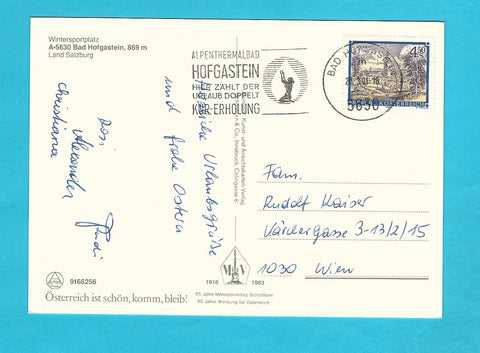 Wintersportplatz
A-5630 Bad Hofgastein, 869 m
Land Salzburg
ALPENTHERMALBAD
HOFGASTEIN
HIER ZÄHLT DER
URLAUB DOPPELT
KUR-ERHOLUNG
BAD HOFGASTEIN
5630
4.50
REPUBLIK ÖSTERREICH
Herzliche Urlaubsgrüße
und frohe Ostern
Rosi
Alexander Rudi
Christiana
Kunst- und Ansichtskarten-Verlag
& Co., Innsbruck,
Fam.
Rudolf Kaiser
3-13/2/15
1030 Wien
9166256
Österreich ist schön, komm, bleib!
1918 1983
65 Jahre Monopolverlag Schöllhorn
65 Jahre Werbung für Österreich